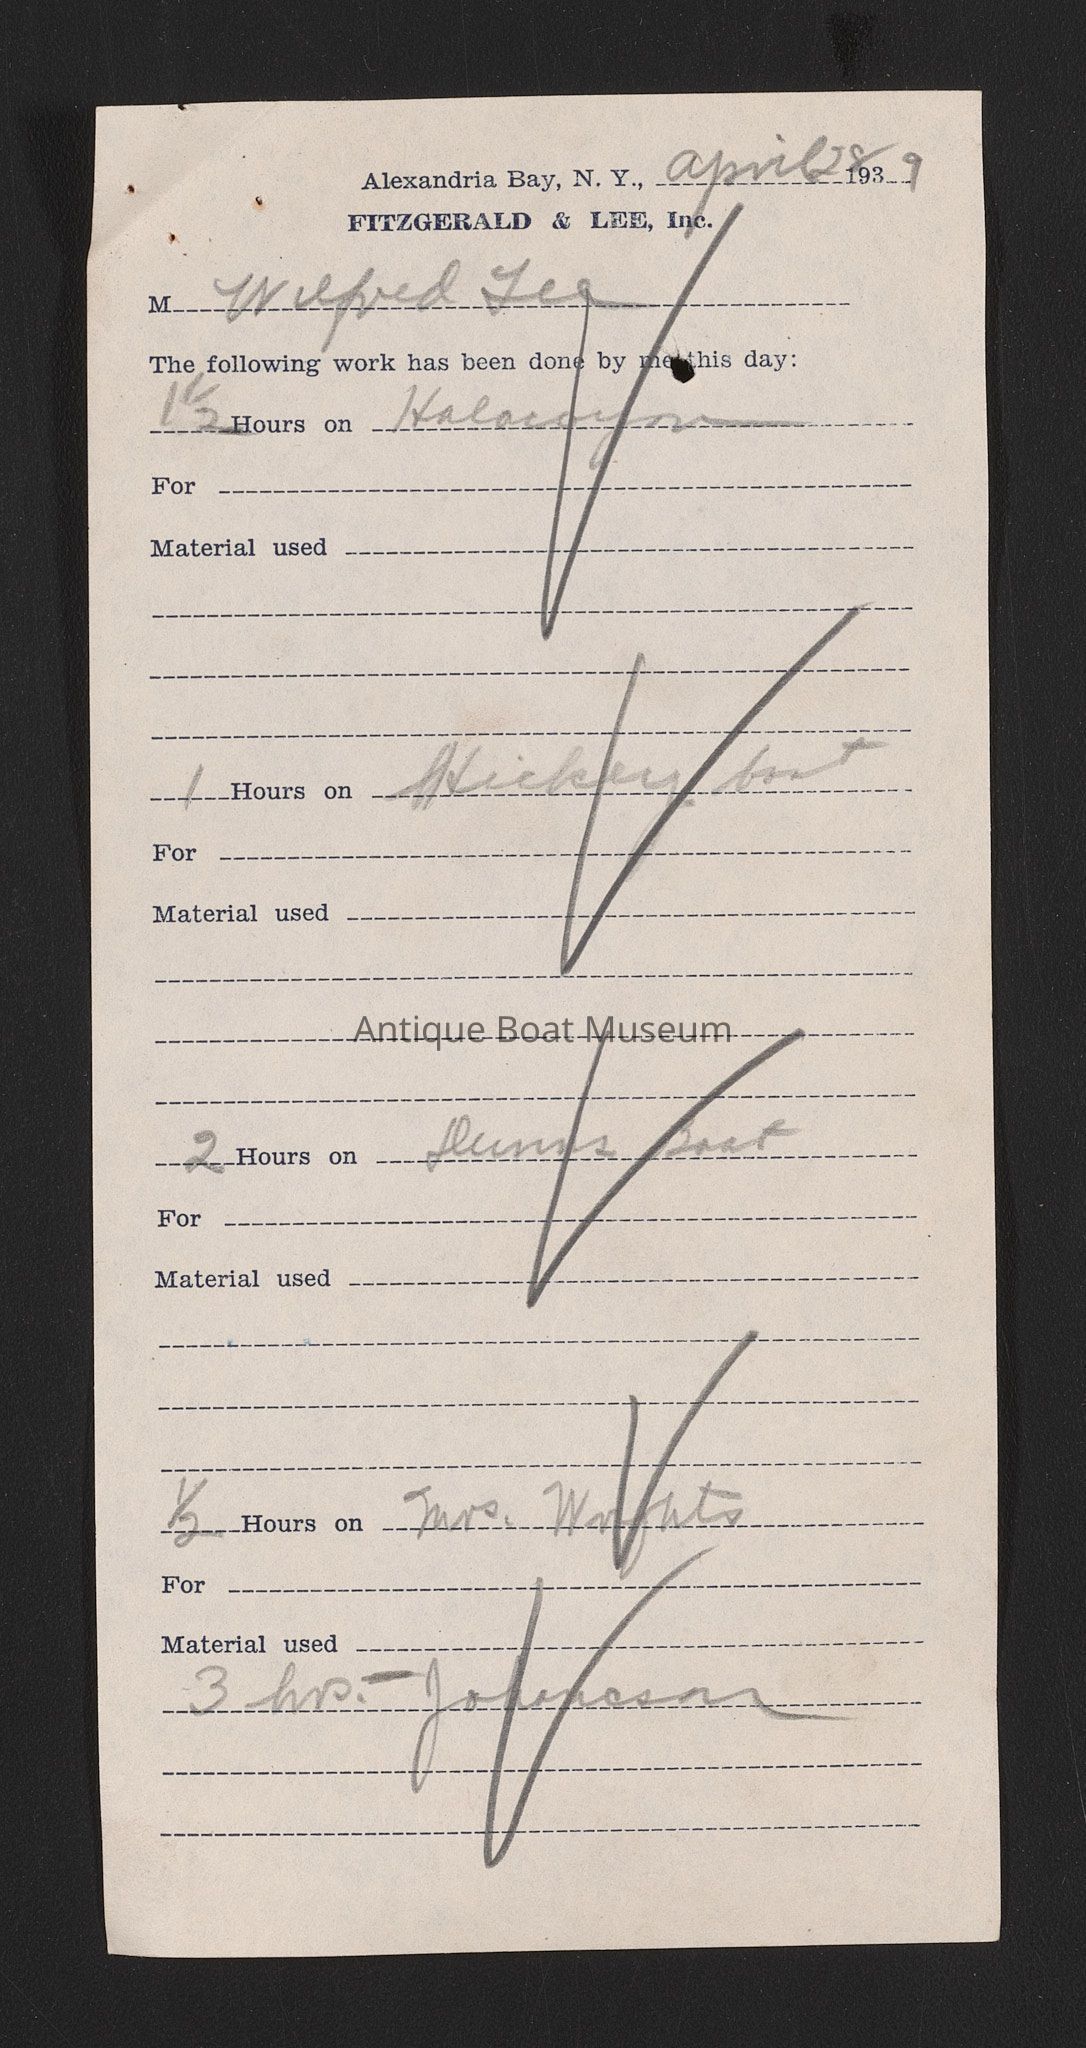 Alexandria Bay, N. Y., April 28 1939
FITZGERALD & LEE, Inc.
M Wilfred
The following work has been done by me this day:
1 1/2 Hours on
For
Material used
1 Hours on Hickey boat
For
Material used
Antique Boat Museum
2 Hours on Dunns Boat
For
Material used
1/2 Hours on Mrs. Wrights
For
Material used
3 hrs. - Johancson